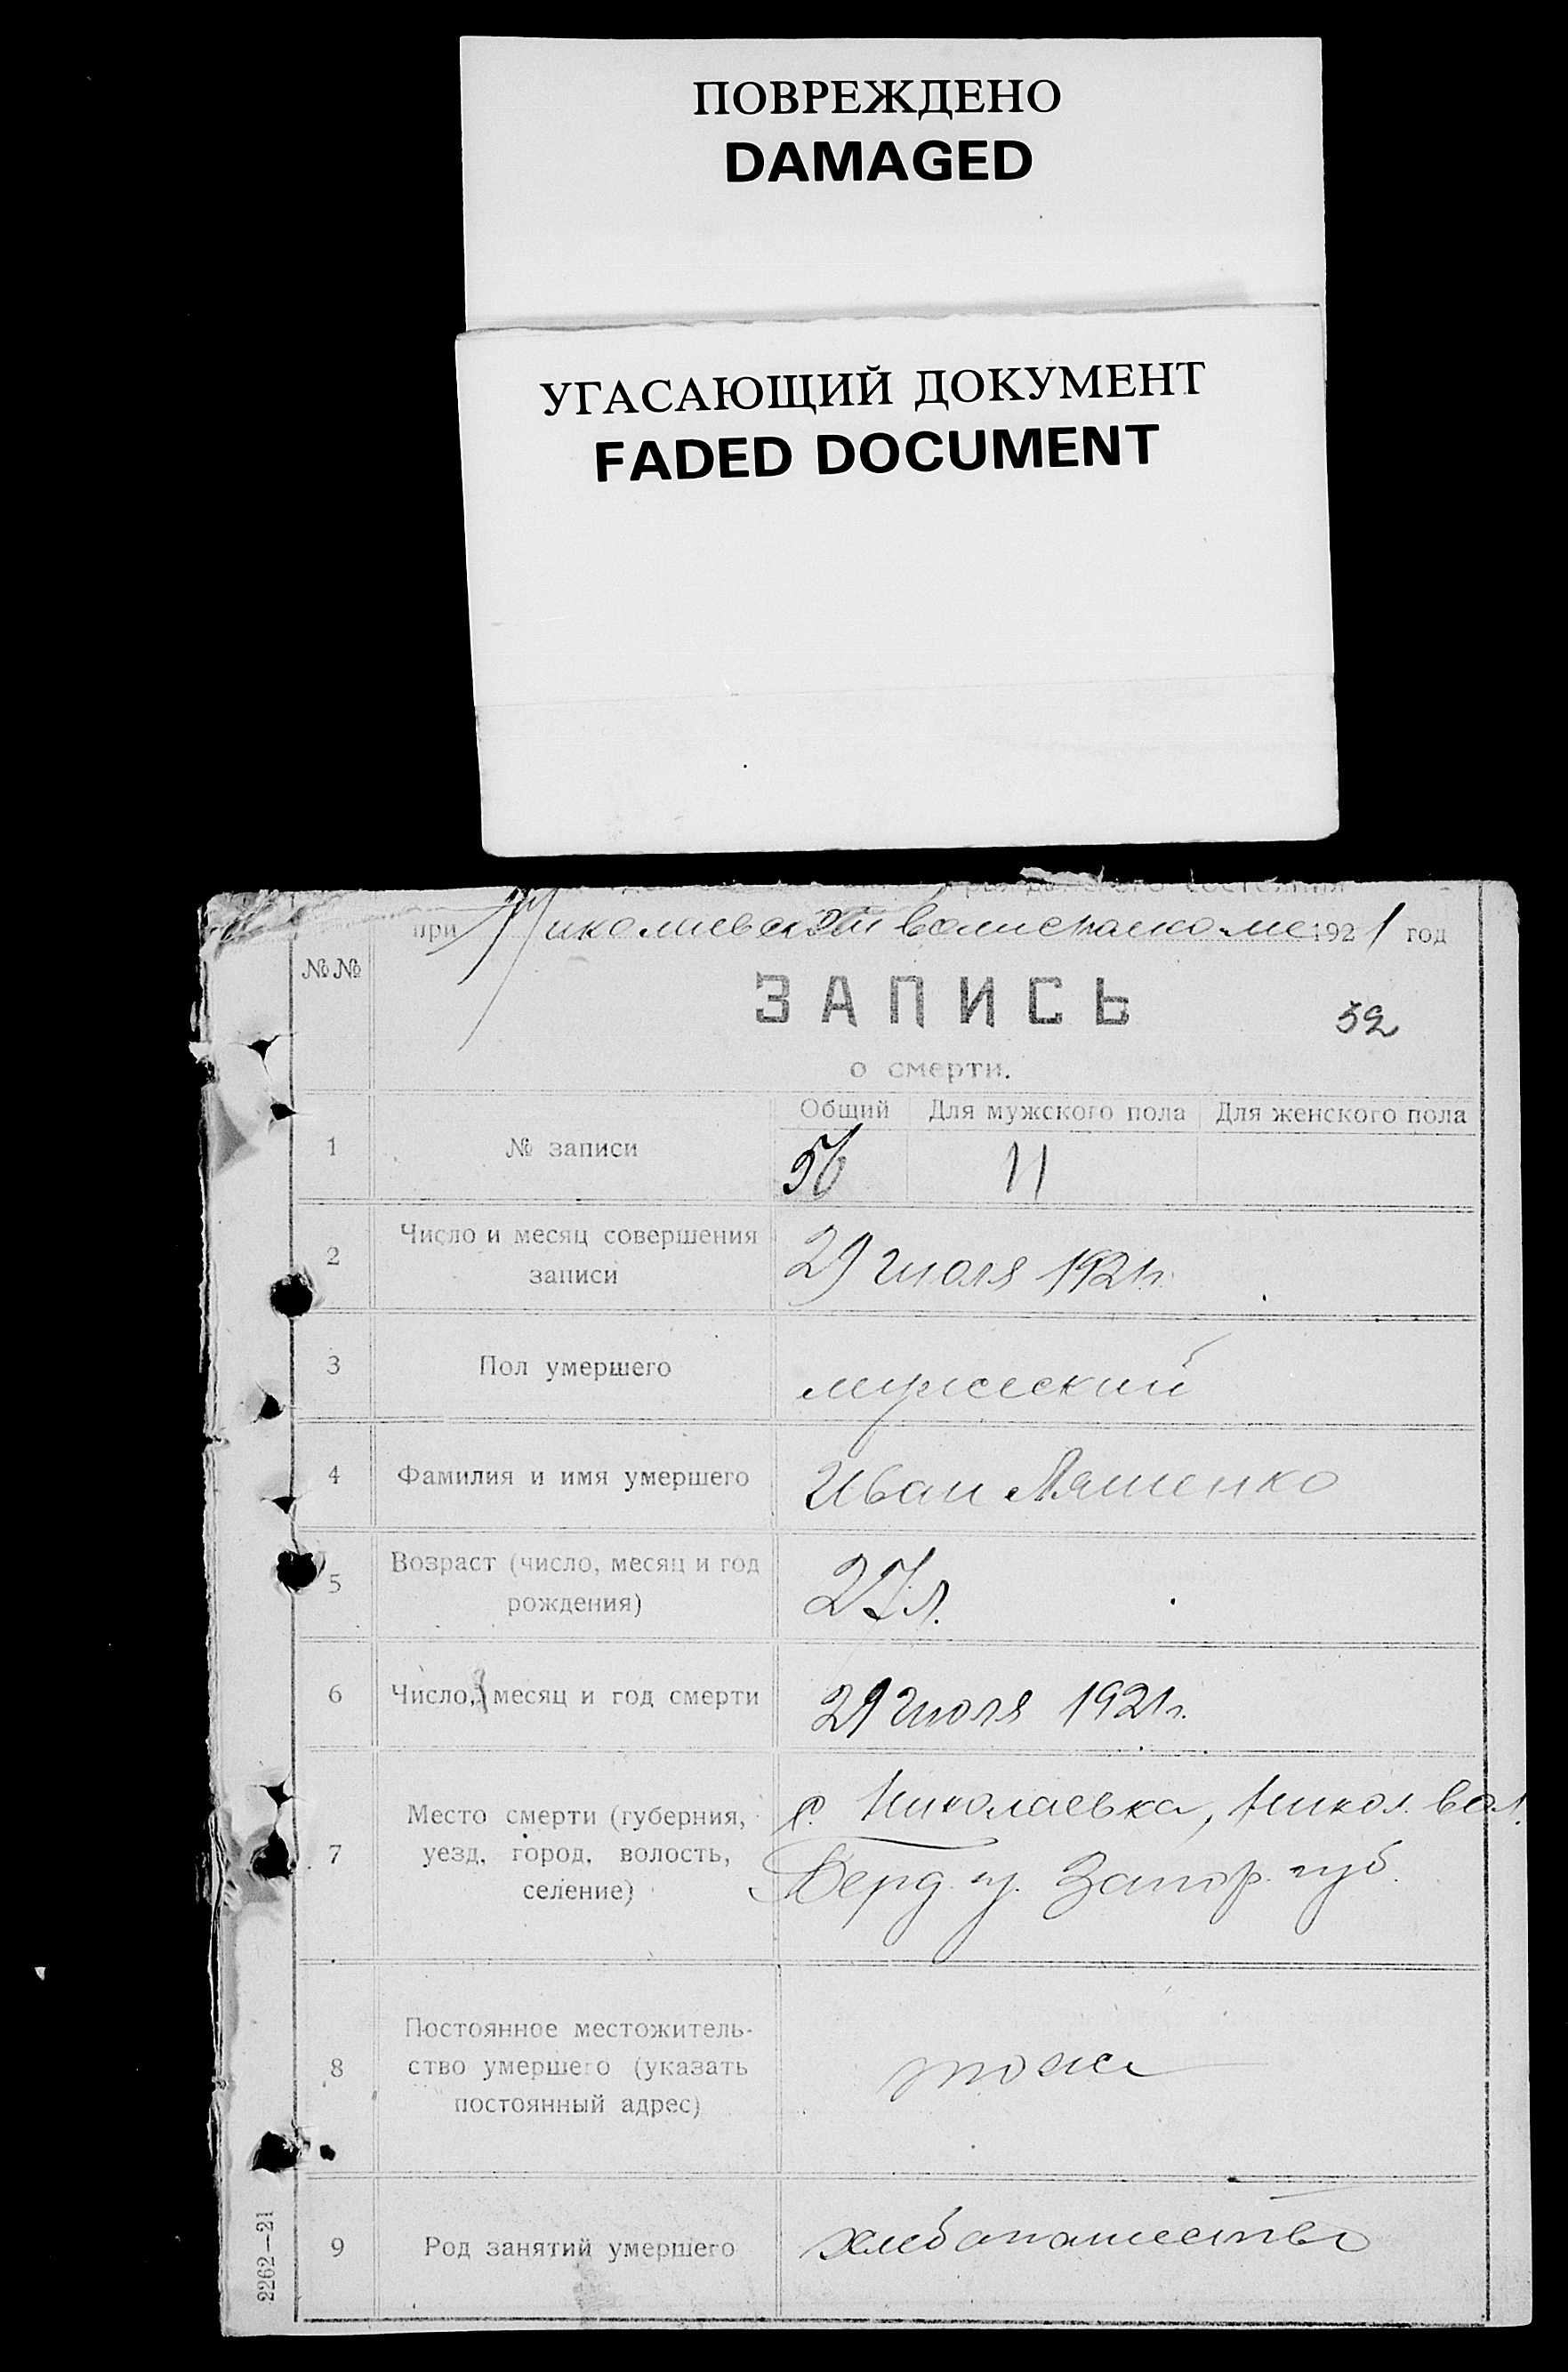 ПОВРЕЖДЕНО
DAMAGED
УГАСАЮЩИЙ ДОКУМЕНТ
FADED DOCUMENT
состояния
при Николаевском волисполкоме 1921 год
№№
ЗАПИСЬ
52
о смерти.
Общий Для мужского пола Для женского пола
1 № записи 56 11
2 Число и месяц совершения
записи
29 июля 1921 г.
3 Пол умершего мужеский
4 Фамилия и имя умершего Иван Ляшенко
5 Возраст (число, месяц и год
рождения)
27 л.
6 Число, месяц и год смерти 29 июля 1921 г.
7 Место смерти (губерния,
уезд, город, волость,
селение)
с. Николаевка, Никол. вол.
Берд. у. Запор. губ.
8 Постоянное местожитель-
ство умершего (указать
постоянный адрес)
тоже
9 Род занятий умершего хлебопашество
2262—21